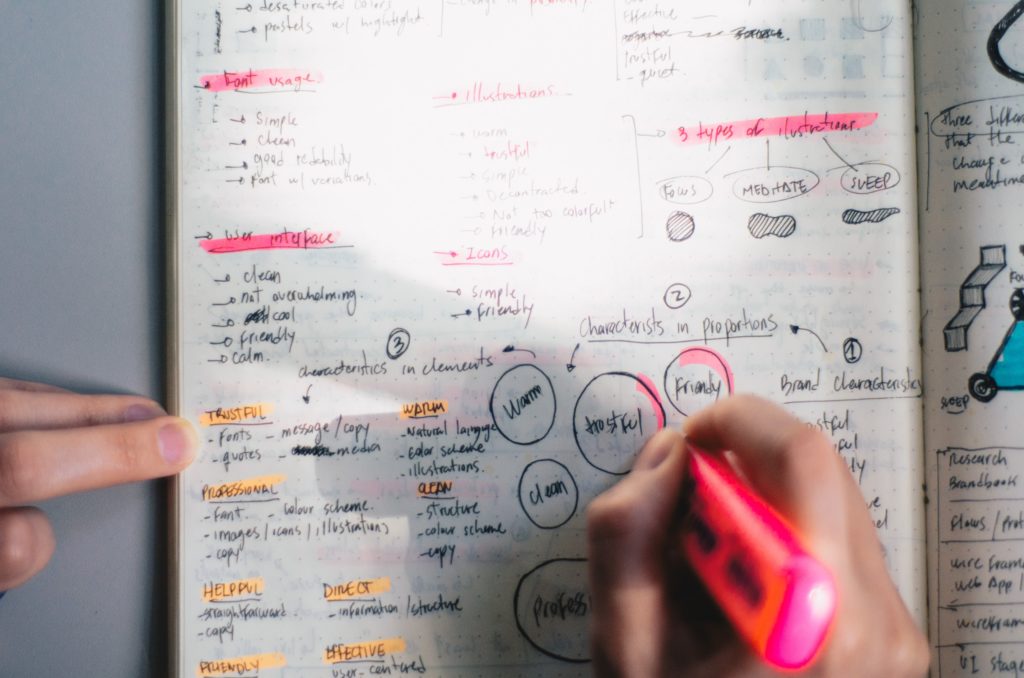 desaturated colors
pastels w/ highlight.
Effective
trustful
- quiet.
Font usage
Simple
Clean
good redability
Font w/ variations.
User interface
clean
not overwhelming.
cool
Friendly
calm.
Illustrations
warm
trustful
simple
Decontracted
Not too colorful
friendly
Icons
simple
Friendly
3 types of ilustrations.
Focus
MEDITATE
SLEEP
3
characteristics in elements
2
Characterists in proportions
1
Brand characteristics
Warm
trostful
Friendly
clean
TRUSTFUL
- Fonts
- quotes
- message/copy
media
WARM
- Natural language
- color scheme
- illustrations.
PROFESSIONAL
- Font
- colour scheme.
- images/icons/illustrations
- copy
CLEAN
- structure
- colour scheme
- copy
HELPFUL
- straightforward
- copy
DIRECT
- information/structure
FRIENDLY
EFFECTIVE
user-centered
that the
change
SLEEP
Research
Brandbook
Flows/
Web App/
UI